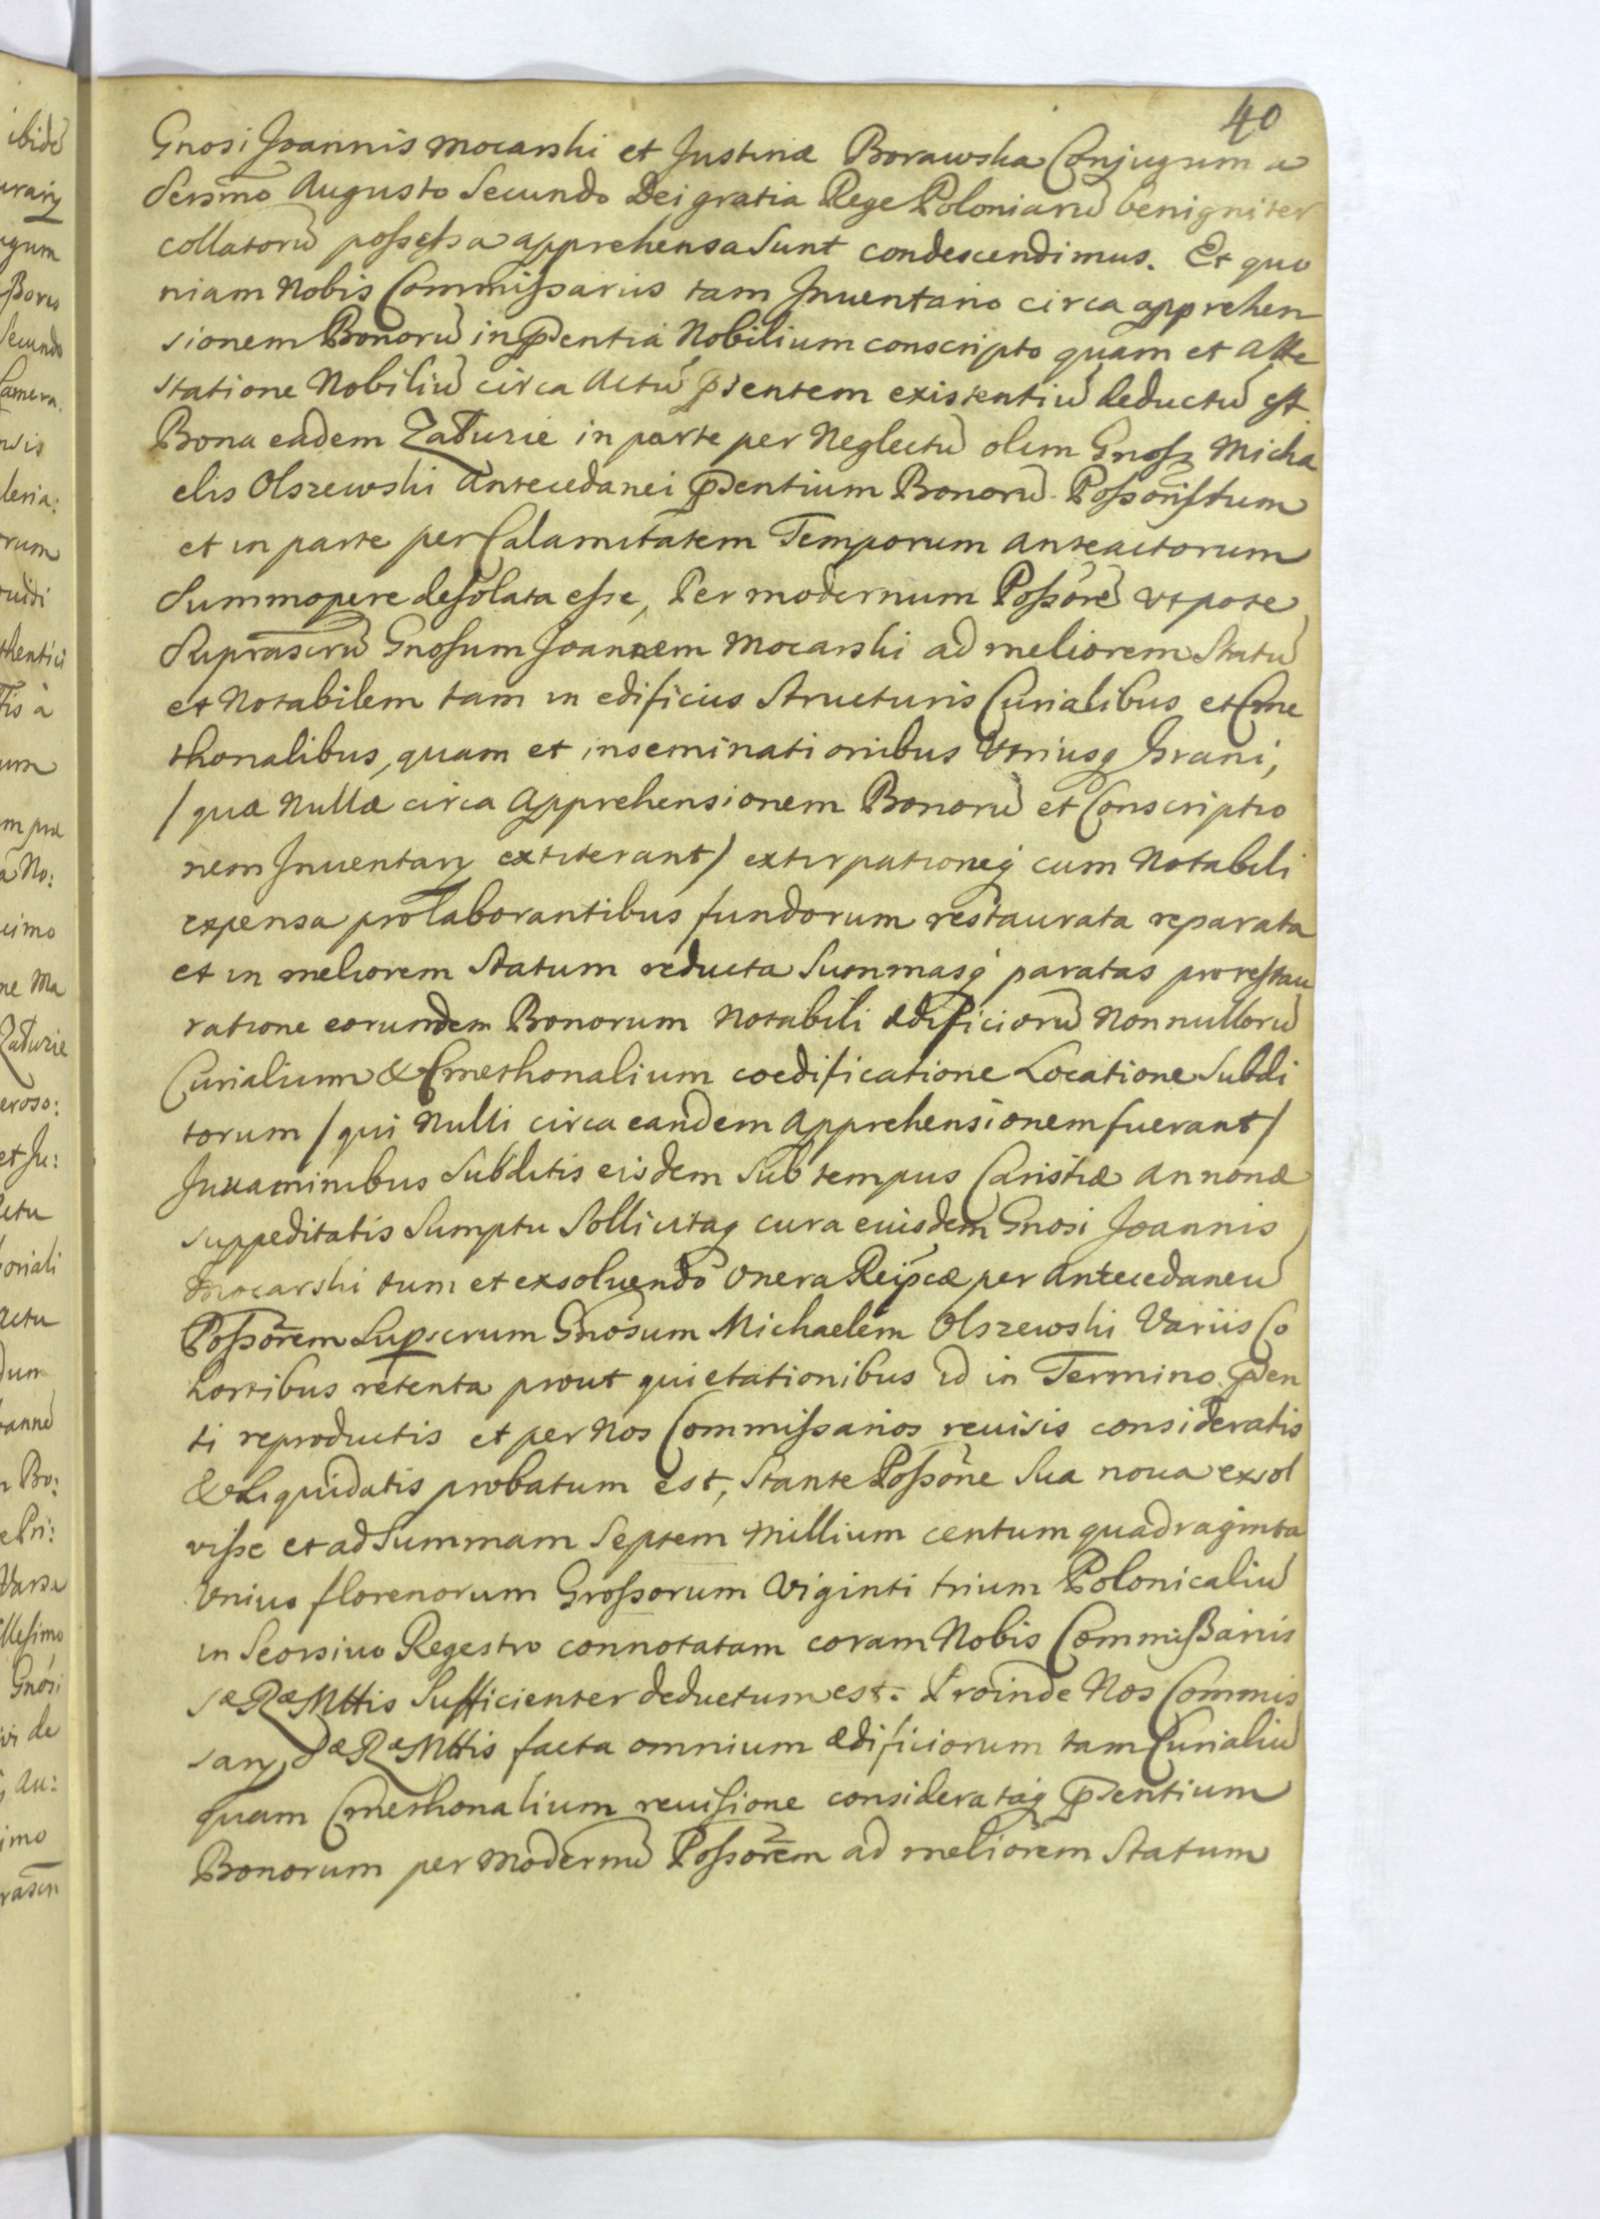 40
Gnosi Joannis Mocarski et Justinæ Borawska Conjugum a
Sersmo Augusto Secundo Dei gratia Rege Poloniarũ benigniter
collatorũ possessa apprehensa sunt condescendimus. Et quo
niam Nobis Commissariis tam Inuentario circa apprehen
sionem Bonorũ in pñtia Nobilium conscripto quam et Atte
statione Nobiliũ circa Actũ pñtentem existentiũ deductũ est
Bona eadem Zaduzie in parte per Neglectũ olim Gnosi Micha
elis Olszewski Antecedanei pñtium Bonorũ
et in parte per Calamitatem Temporum anteactorum
Summopere desolata esse, Per modernum Possõrẽ utpote
Suprascrũ Gnosum Joannem Mocarski ad meliorem Statũ
et Notabilem tam in edificiis Structuris Curialibus et Cme
thonalibus, quam et inseminationibus Utriusq Grani,
/quæ Nullæ circa Apprehensionem Bonorũ et Conscriptio
nem Inuentarij extiterant/ extirpationeq cum Notabili
expensa pro laborantibus fundorum restaurata reparata
et in meliorem Statum reducta Summasq paratas pro restau
ratione eorundem Bonorum Notabili ædificiorũ Nonnullorũ
Curialium & Cmethonalium coedificatione Locatione Subdi
torum /qui Nulli circa eandem Apprehensionem fuerant/
Juuaminibus Subditis eisdem Sub tempus Caristiæ annonæ
suppeditatis Sumptu Sollicitaq cura eiusdem Gnosi Joannis
Mocarski tum et exsoluendo onera Reipcæ per Antecedaneũ
Possõrem Supscrum Gnosum Michaelem Olszewski Variis Co
hortibus retenta prout quietationibus id in Termino pñten
ti reproductis et per Nos Commissarios reuisis consideratis
& Liquidatis probatum est, Stante Possõne Sua noua exsol
visse et ad Summam Septem Millium centum quadraginta
Unius florenorum Grossorum Viginti trium Polonicaliũ
in Seorsiuo Regestro connotatam coram Nobis Commissariis
Sæ Ræ Mttis Sufficienter deductum est. Proinde Nos Commis
sarij Sæ Ræ Mttis facta omnium ædificiorum tam Curialiũ
quam Cmethonalium reuisione considerataq pñtium
Bonorum per Modernũ Possõrem ad meliorem Statum